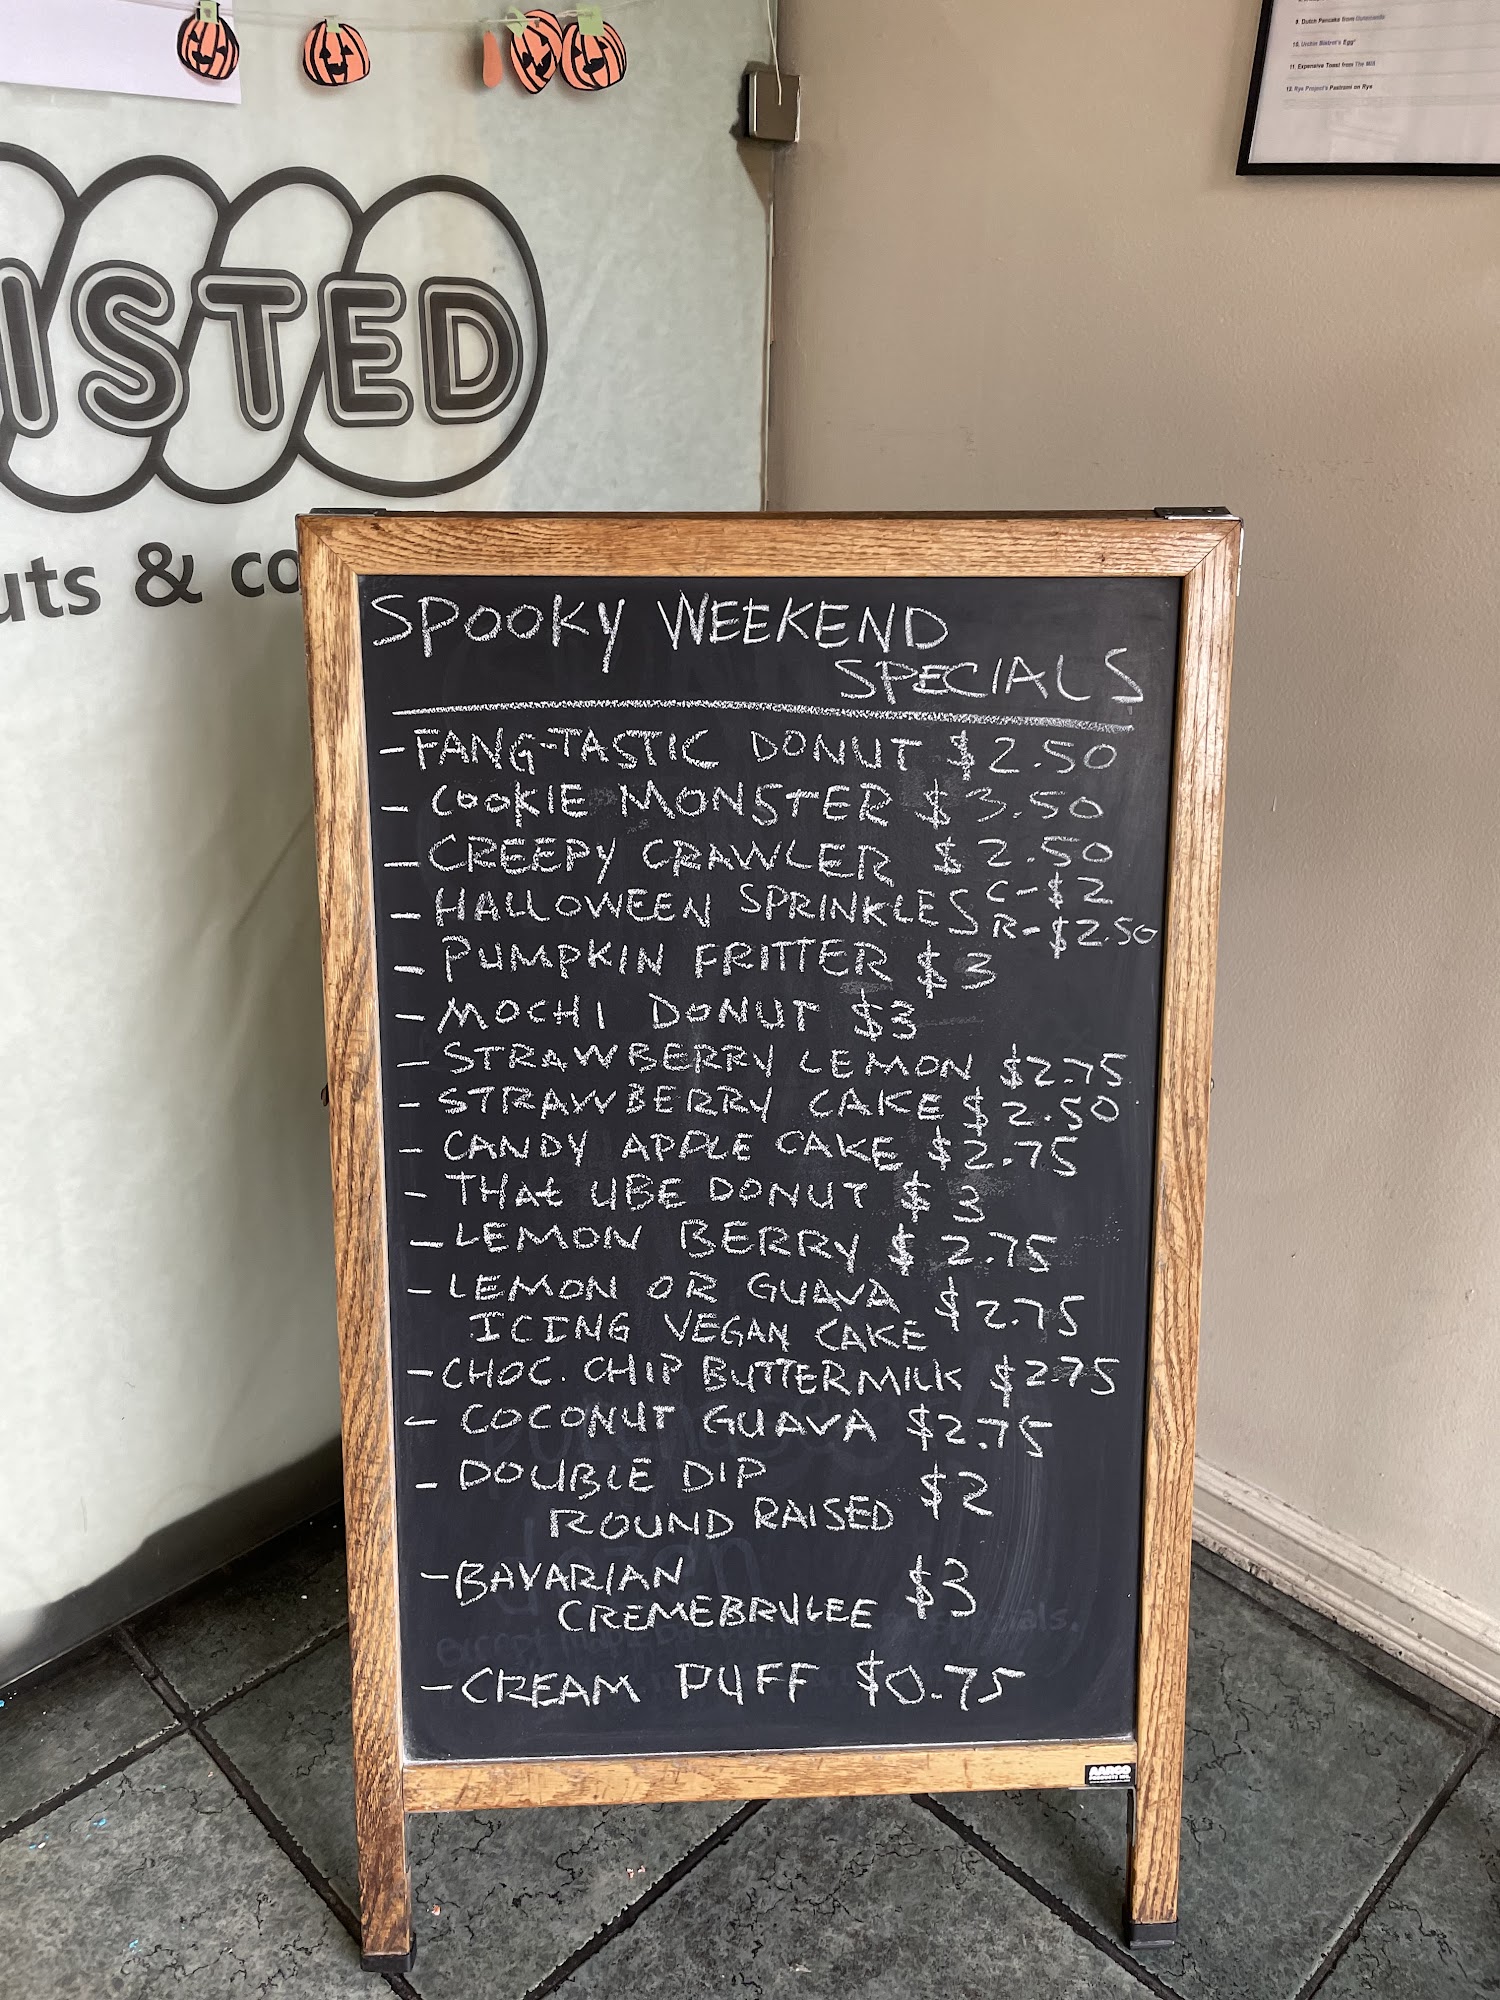 9. Dutch Pancake from
10. Urchin Bistrot's Egg*
11. Expensive Toast from The Mill
12. Rye Project's Pastrami on Rye
ISTED
uts & co
SPOOKY WEEKEND
SPECIALS
- FANG-TASTIC DONUT $2.50
- COOKIE MONSTER $3.50
- CREEPY CRAWLER $2.50
- HALLOWEEN SPRINKLES C-$2
R-$2.50
- PUMPKIN FRITTER $3
- MOCHI DONUT $3
- STRAWBERRY LEMON $2.75
- STRAWBERRY CAKE $2.50
- CANDY APPLE CAKE $2.75
- THAt UBE DONUT $3
- LEMON BERRY $2.75
- LEMON OR GUAVA
ICING VEGAN CAKE $2.75
- CHOC. CHIP BUTTERMILK $2.75
- COCONUT GUAVA $2.75
- DOUBLE DIP
ROUND RAISED $2
- BAVARIAN
CREMEBRULEE $3
- CREAM PUFF $0.75
AARCO
PRODUCTS INC.